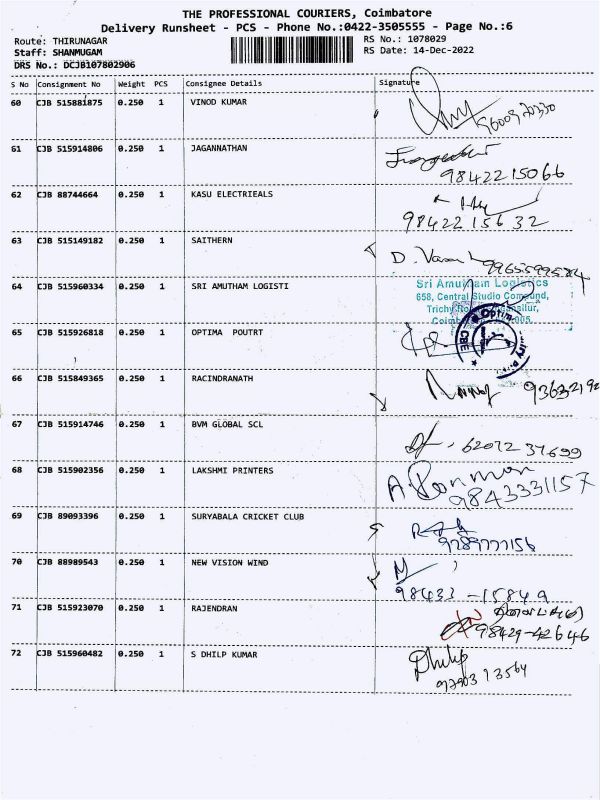 THE PROFESSIONAL COURIERS, Coimbatore
Delivery Runsheet - PCS - Phone No.:0422-3505555 - Page No.:6
Route: THIRUNAGAR
RS No.: 1078029
Staff: SHANMUGAM
RS Date: 14-Dec-2022
DRS No.: DCJB107802906
S No Consignment No Weight PCS Consignee Details Signature
60 CJB 515881875 0.250 1 VINOD KUMAR
9600970330
61 CJB 515914806 0.250 1 JAGANNATHAN
9842215066
62 CJB 88744664 0.250 1 KASU ELECTRIEALS
9842215632
63 CJB 515149182 0.250 1 SAITHERN
D.
64 CJB 515960334 0.250 1 SRI AMUTHAM LOGISTI
Sri Amutham Logistics
658, Central Studio Compound,
Trichy
65 CJB 515926818 0.250 1 OPTIMA POUTRT
66 CJB 515849365 0.250 1 RACINDRANATH
67 CJB 515914746 0.250 1 BVM GLOBAL SCL
6207237699
68 CJB 515902356 0.250 1 LAKSHMI PRINTERS
A.
9843331157
69 CJB 89093396 0.250 1 SURYABALA CRICKET CLUB
9789777156
70 CJB 88989543 0.250 1 NEW VISION WIND
98433-15849
71 CJB 515923070 0.250 1 RAJENDRAN
98429-42646
72 CJB 515960482 0.250 1 S DHILP KUMAR
Dhilip